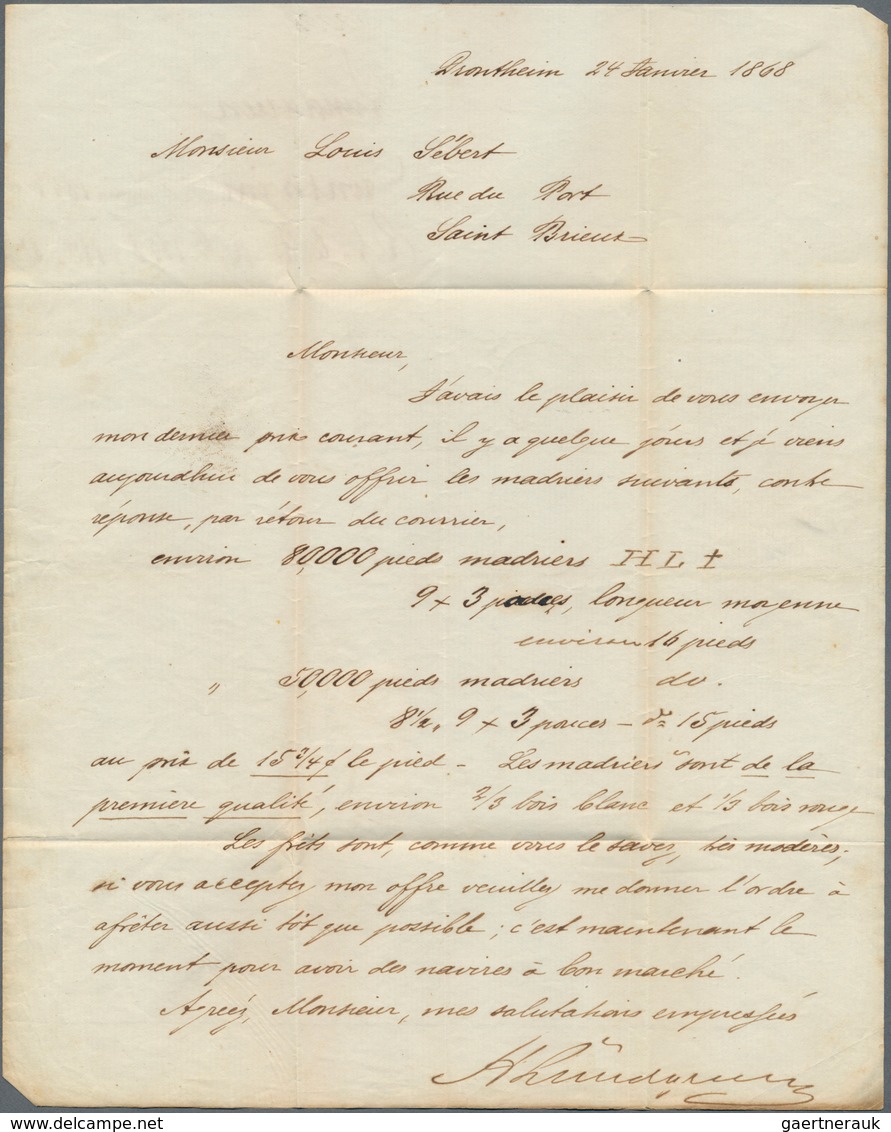 Drontheim 24 Janvier 1868
Monsieur Louis Sébert
Rue du Port
Saint Brieux
Monsieur,
J'avais le plaisir de vous envoyer
mon dernier prix courant, il y a quelque jours et je viens
aujourdhui de vous offrir les madriers suivants, contre
réponse, par rétour du courrier,
environ 80,000 pieds madriers H L †
9 x 3 pouces, longueur moyenne
environ 16 pieds
" 50,000 pieds madriers do.
8 1/2, 9 x 3 pouces – do 15 pieds
au prix de 15 3/4 f le pied – Les madriers sont de la
première qualité, environ 2/3 bois blanc et 1/3 bois rouge
Les frêts sont, comme vous le savez, très modérés,
si vous acceptez mon offre veuillez me donner l'ordre à
afrêter aussi tôt que possible ; c'est maintenant le
moment pour avoir des navires à bon marché.
Agréez, Monsieur, mes salutations empressées
H Lündgreen
delcampe.net
gaertnerauk